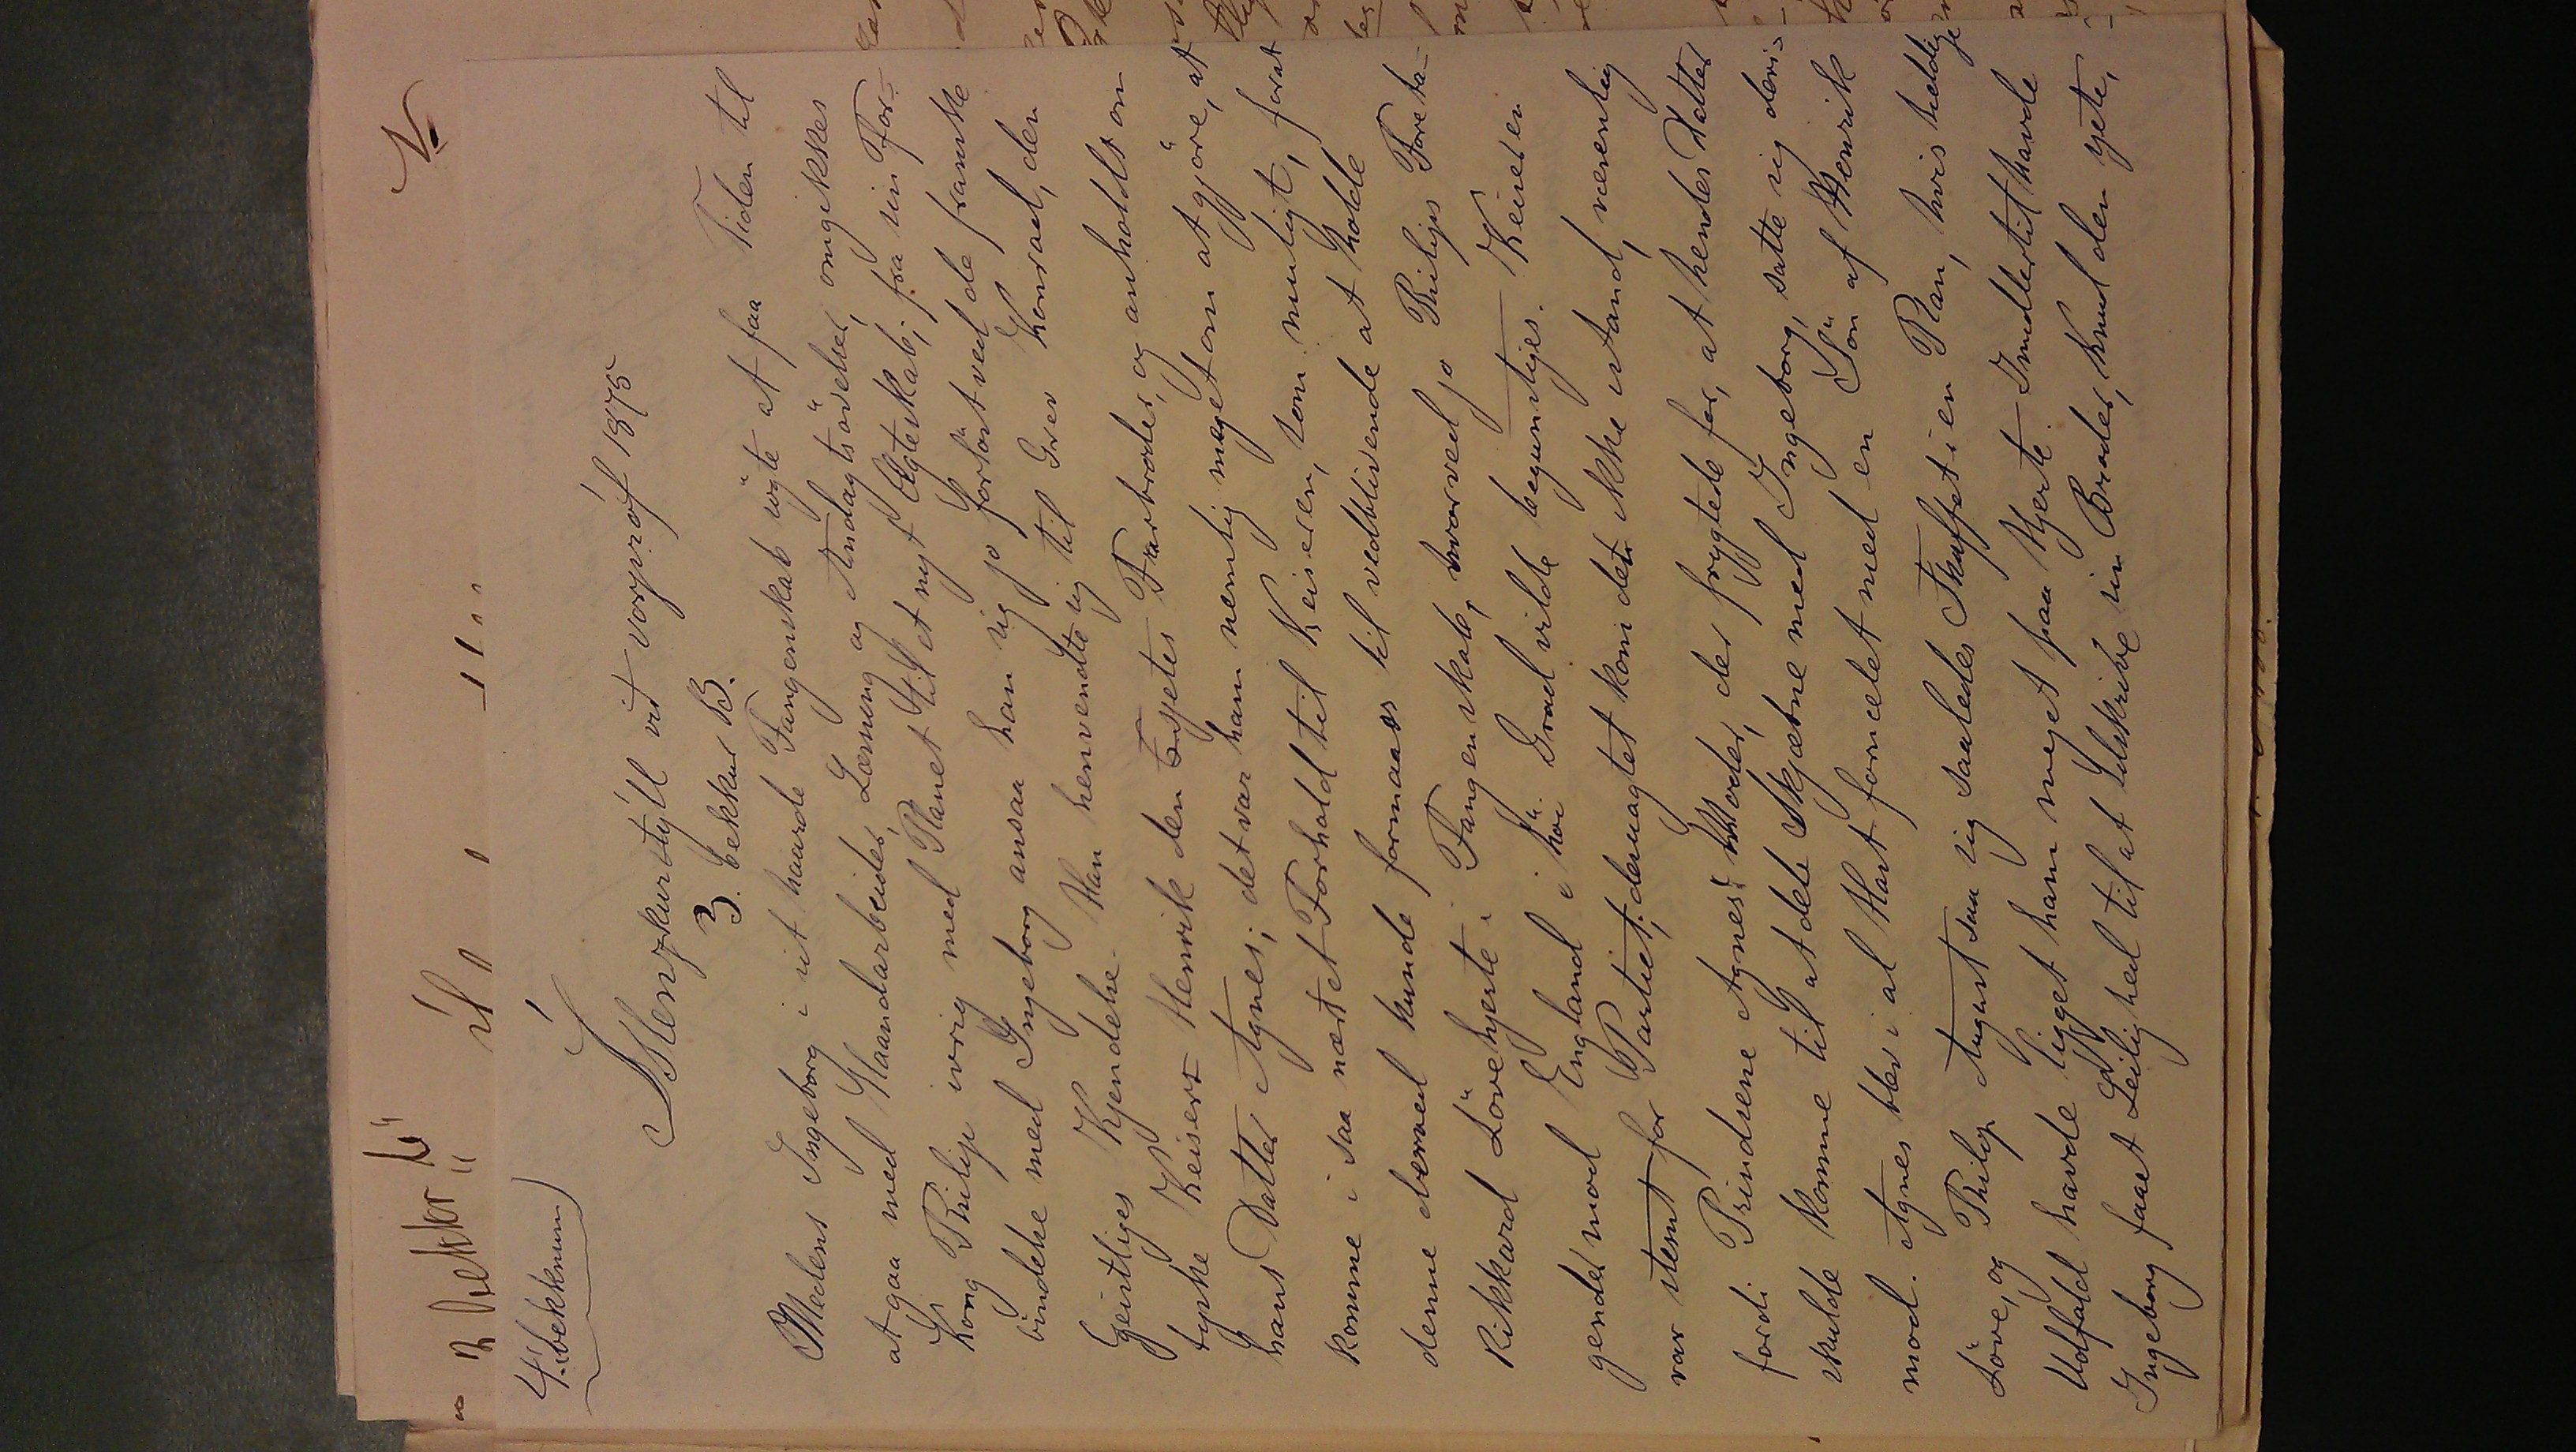 4. bekknum)
Íslenzkur stýll við vorpróf 1875
3. bekkur B.
Medens Ingeborg i sit haarde Fangenskab søgte at faa Tiden til
at gaa med Haandarbeider, Læsning og Andagtsøvelser, omgikkes
Kong Philip ivrig med Planet til et nyt Ægteskab; fra sin For-
bindelse med Ingeborg ansaa han sig jo forløst ved de franske
Geistliges Kjendelse. Han henvendte sig til Grev Konrad, den
tyske Keiser Henrik den Sjettes Farbroder, og anholdt om
hans Datter Agnes; det var ham nemlig meget om at gjøre, at
komme i saa nært et Forhold til Keiseren, som muligt, forat
denne derved kunde formaaes til vedblivende at holde
Rikkard Løvehjerte i Fangenskab, hvorved jo Philips Foreta-
gender mod England i høi Grad vilde begunstiges. Keiseren
var stemt for Partiet; desuagtet kom det ikke istand, nemlig
fordi Prindsesse Agnes's Moder, der frygtede for, at hendes Datter
skulde komme til at dele Skjæbne med Ingeborg, satte sig deri-
mod. Agnes blev i al Hast formælet med en Søn af Henrik
Løve, og Philip August saa sig saaledes skuffet i en Plan, hvis heldige
Udfald havde ligget ham meget paa Hjerte. Imidlertid havde
Ingeborg faaet Leilighed til at tilskrive sin Broder, Knud den sjette,